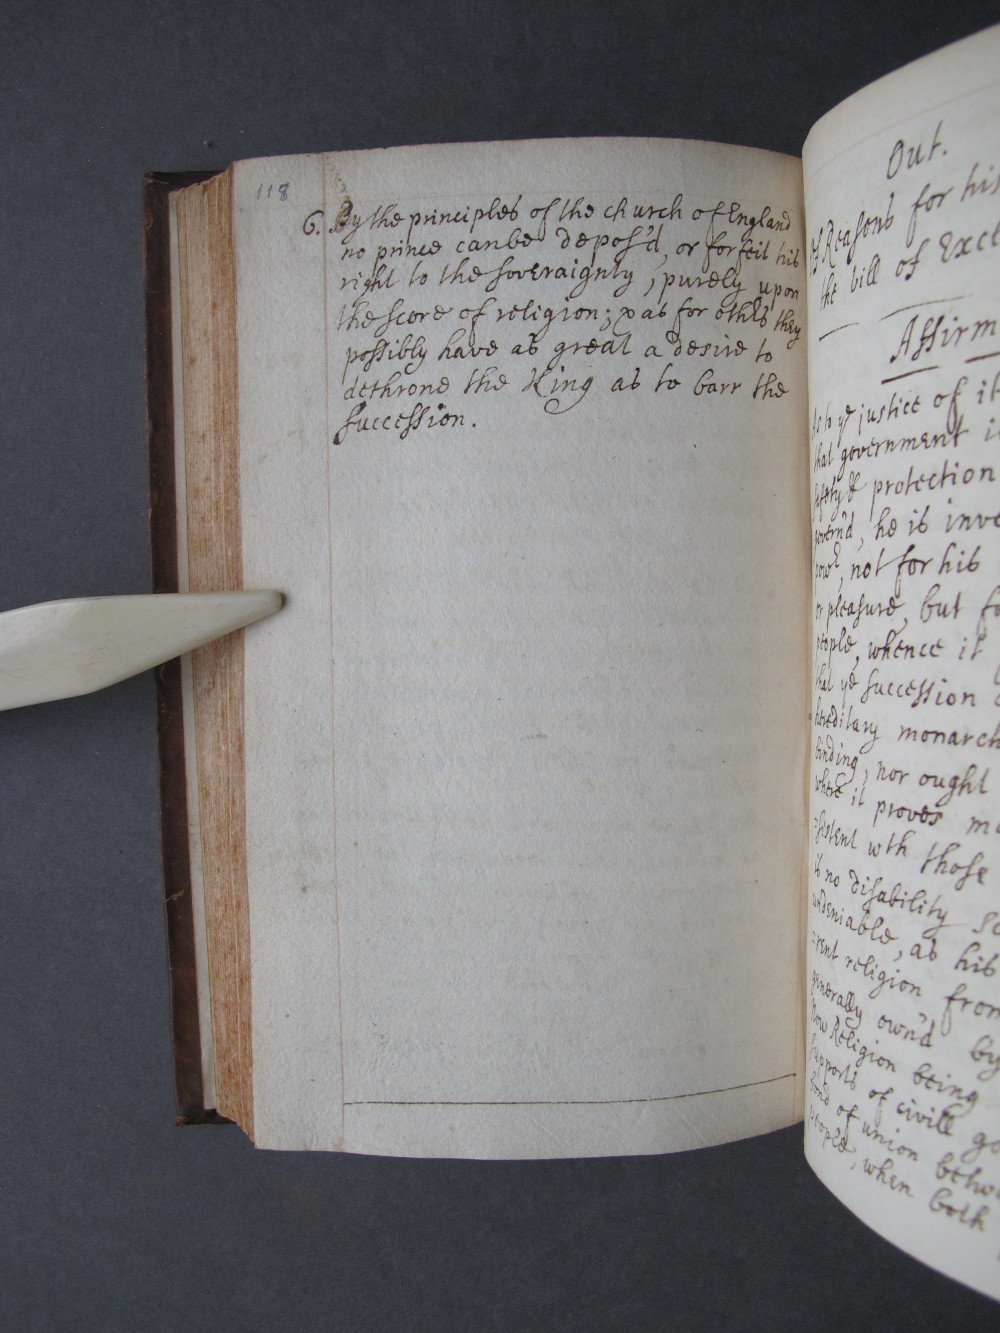 118
6. By the principles of the church of England
no prince canbe depos'd, or forfeit his
right to the soveraignty, purely upon
the score of religion; & as for othrs they
possibly have as great a desire to
dethrone the King as to barr the
succession.
Out.
Reasons for his
the bill of
Affirm
As to ye justice of it
that government
protection
govern'd, he is inve
powr, not for his
or pleasure, but fo
people, whence it
that ye succession
hereditary monarch
binding, nor ought
where it proves m
sistent wth those
is no disability
undeniable, as his
rent religion, from
generally own'd by
now Religion being
supports of civill go
bond of union betwe
people, when both